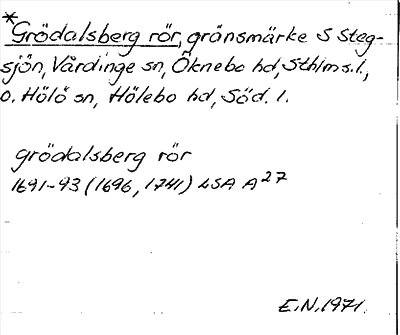 *Grödalsberg rör, gränsmärke S Steg-
sjön, Vårdinge sn, Öknebo hd, Sthlms.l.,
o. Hölö sn, Hölebo hd, Söd. l.
grödalsberg rör
1691-93 (1696, 1741) LSA A27
E.N.1971.